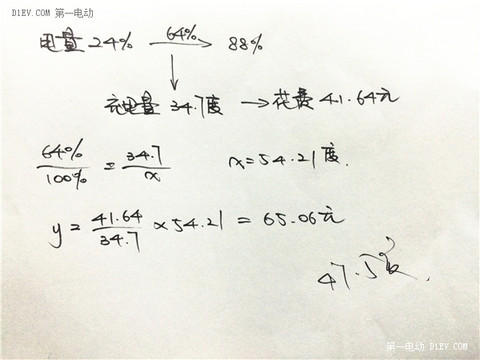 D1EV.COM 第一电动
电量 24% 64% → 88%
↓
充电量 34.7度 → 花费 41.64元
64%/100% = 34.7/x x=54.21度.
y = 41.64/34.7 × 54.21 = 65.06元
47.5
第一电动 D1EV.COM